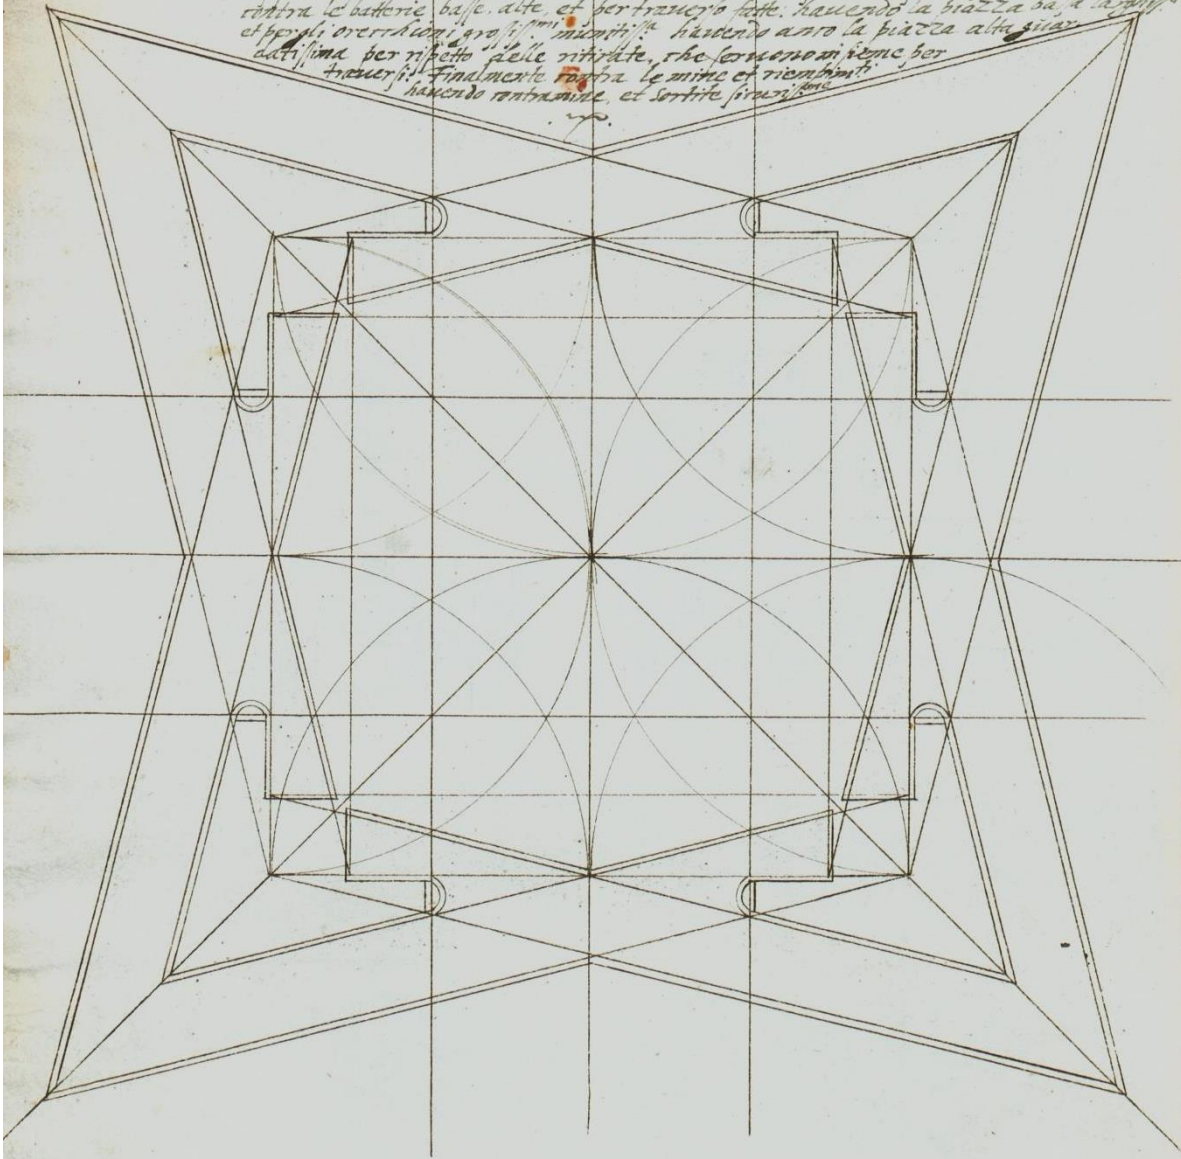 contra le batterie basse, alte, et per traverso fatte: havendo la piazza bassa
et per gli orecchioni grossiss.mi munitiss.a havendo anco la piazza alta guar-
datissima per rispetto delle ritirate, che servono insieme per
traversi. Finalmente contra le mine et riempim.ti
havendo contramine, et sortite